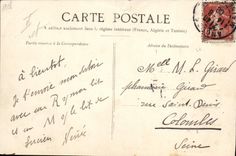 CARTE POSTALE
A utiliser seulement dans le régime intérieur (France, Algérie et Tunisie)
Partie réservée à la Correspondance
Adresse du Destinataire
à bientôt
je t'envoie mon
avec un R
et un M
Lucien
Melle M. L. Girard
pharmacie Girard
rue Saint Denis
Colombes
Seine